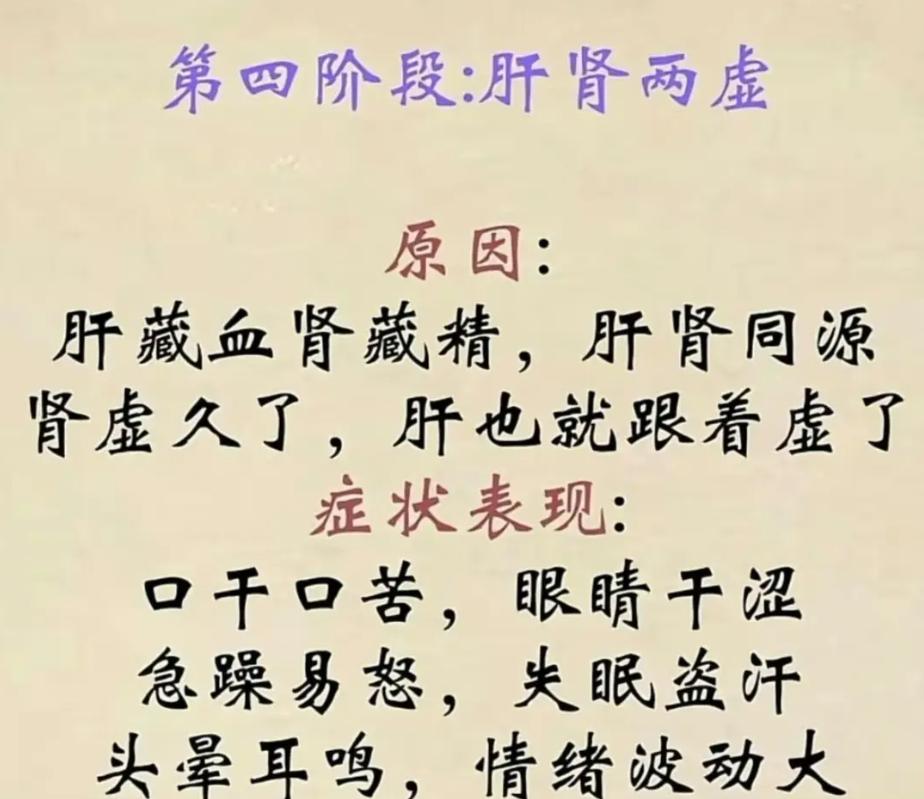 第四阶段:肝肾两虚
原因:
肝藏血肾藏精，肝肾同源
肾虚久了，肝也就跟着虚了
症状表现:
口干口苦，眼睛干涩
急躁易怒，失眠盗汗
头晕耳鸣，情绪波动大